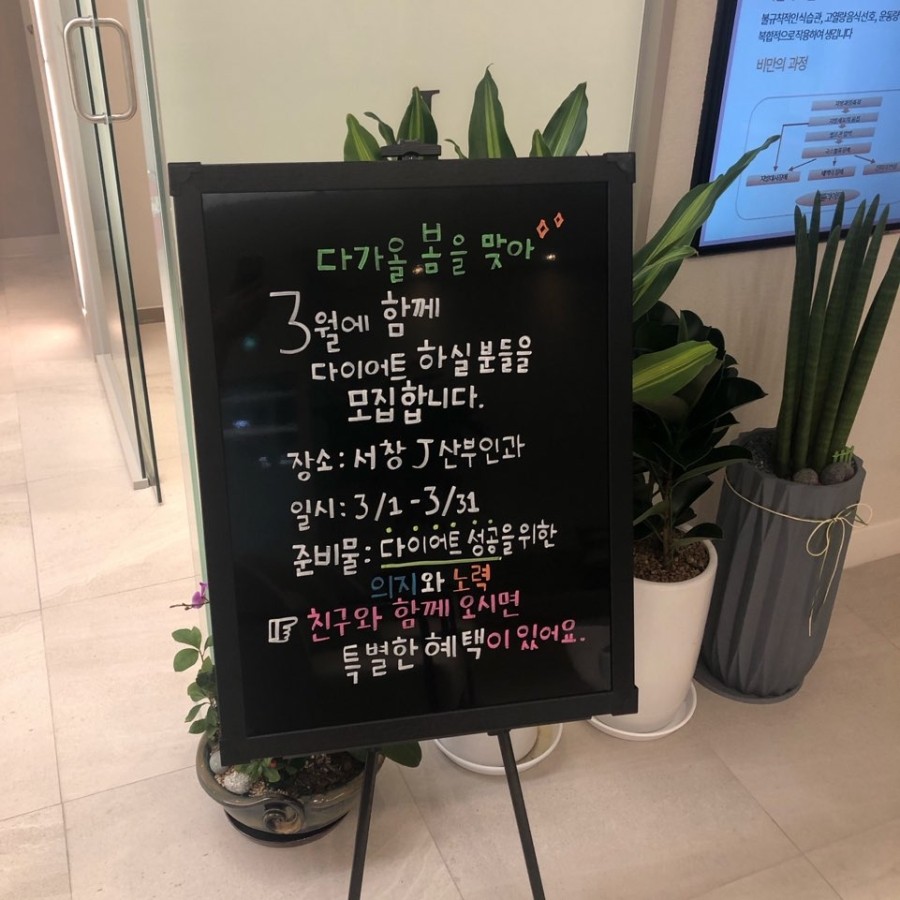 다가올 봄을 맞아
3월에 함께
다이어트 하실 분들을
모집합니다.
장소: 서창 J 산부인과
일시: 3/1 - 3/31
준비물: 다이어트 성공을 위한
의지와 노력
☞ 친구와 함께 오시면
특별한 혜택이 있어요.
불규칙적인 식습관, 고열량음식선호, 운동량
복합적으로 작용하여 생깁니다
비만의 과정